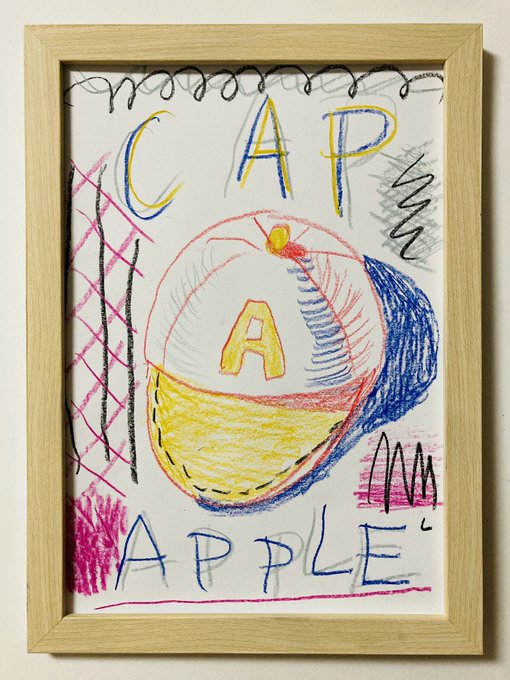 CAP
A
APPLE